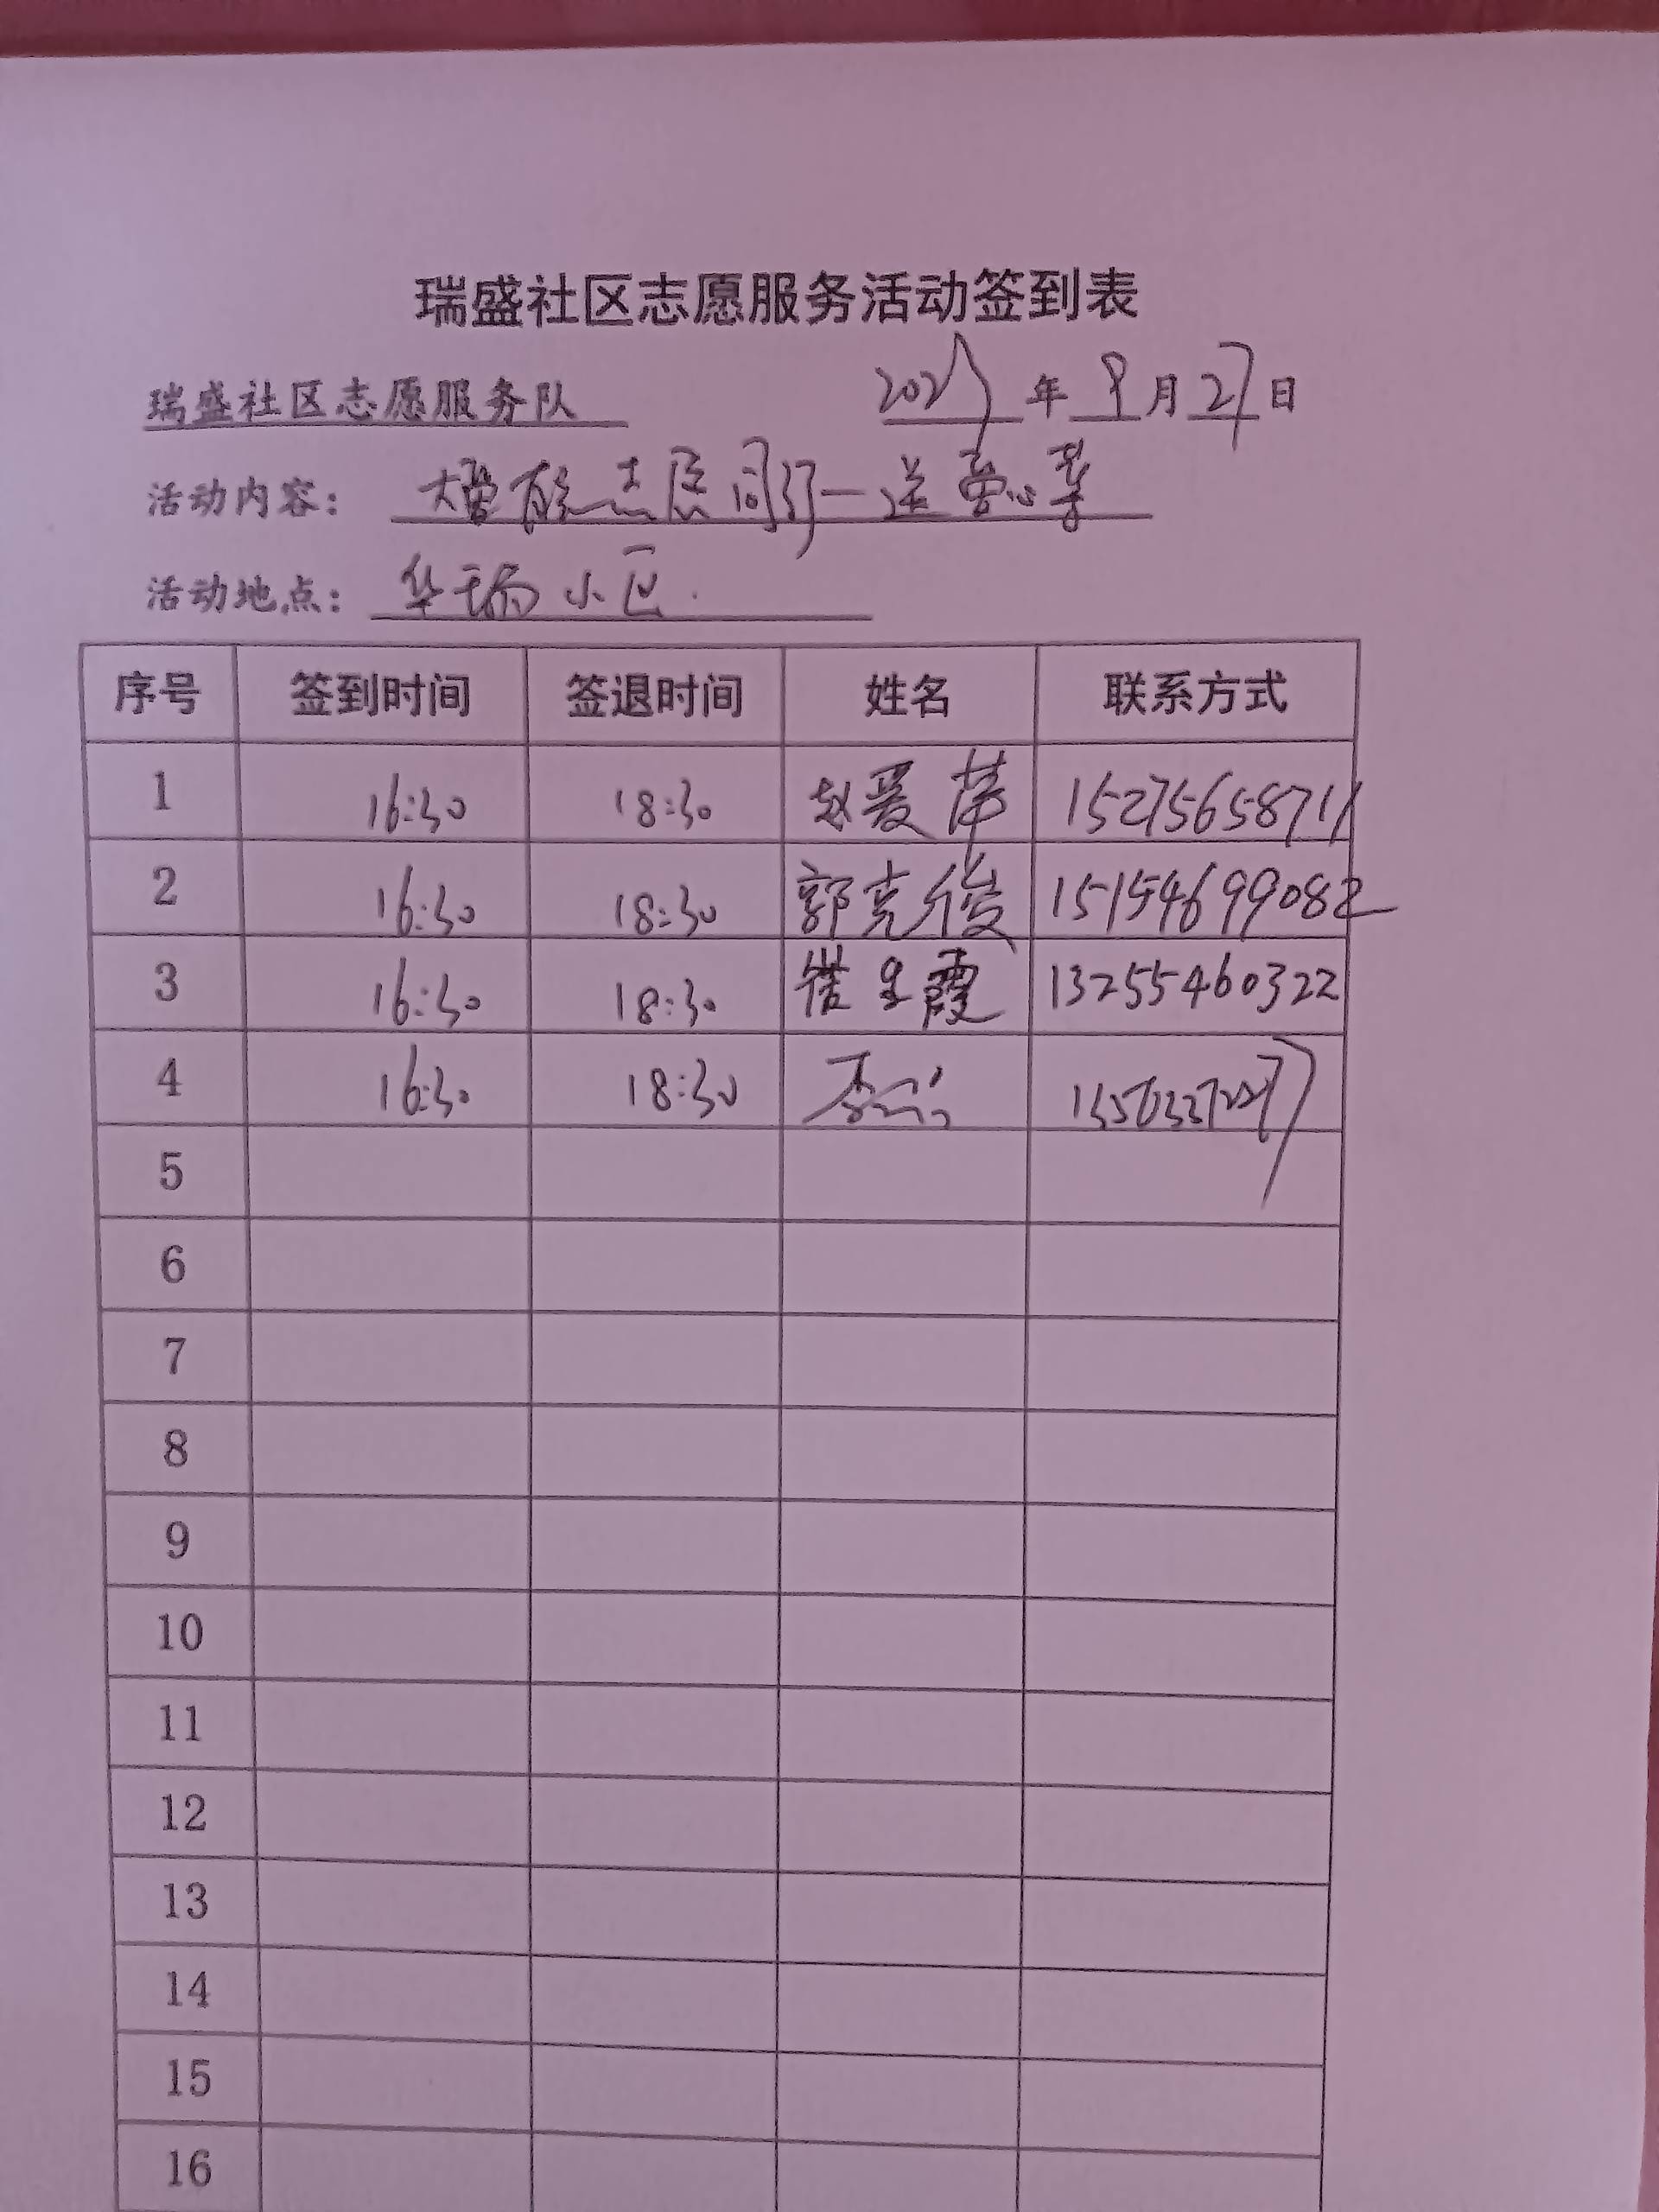 瑞盛社区志愿服务活动签到表
瑞盛社区志愿服务队 年 9月27日
活动内容: 志愿同行一送爱心
活动地点: 华瑞小区.
序号 签到时间 签退时间 姓名 联系方式
1 16:30 18:30 赵爱萍 15275658711
2 16:30 18:30 郭克俊 15154699082
3 16:30 18:30 霞 13255460322
4 16:30 18:30
5
6
7
8
9
10
11
12
13
14
15
16